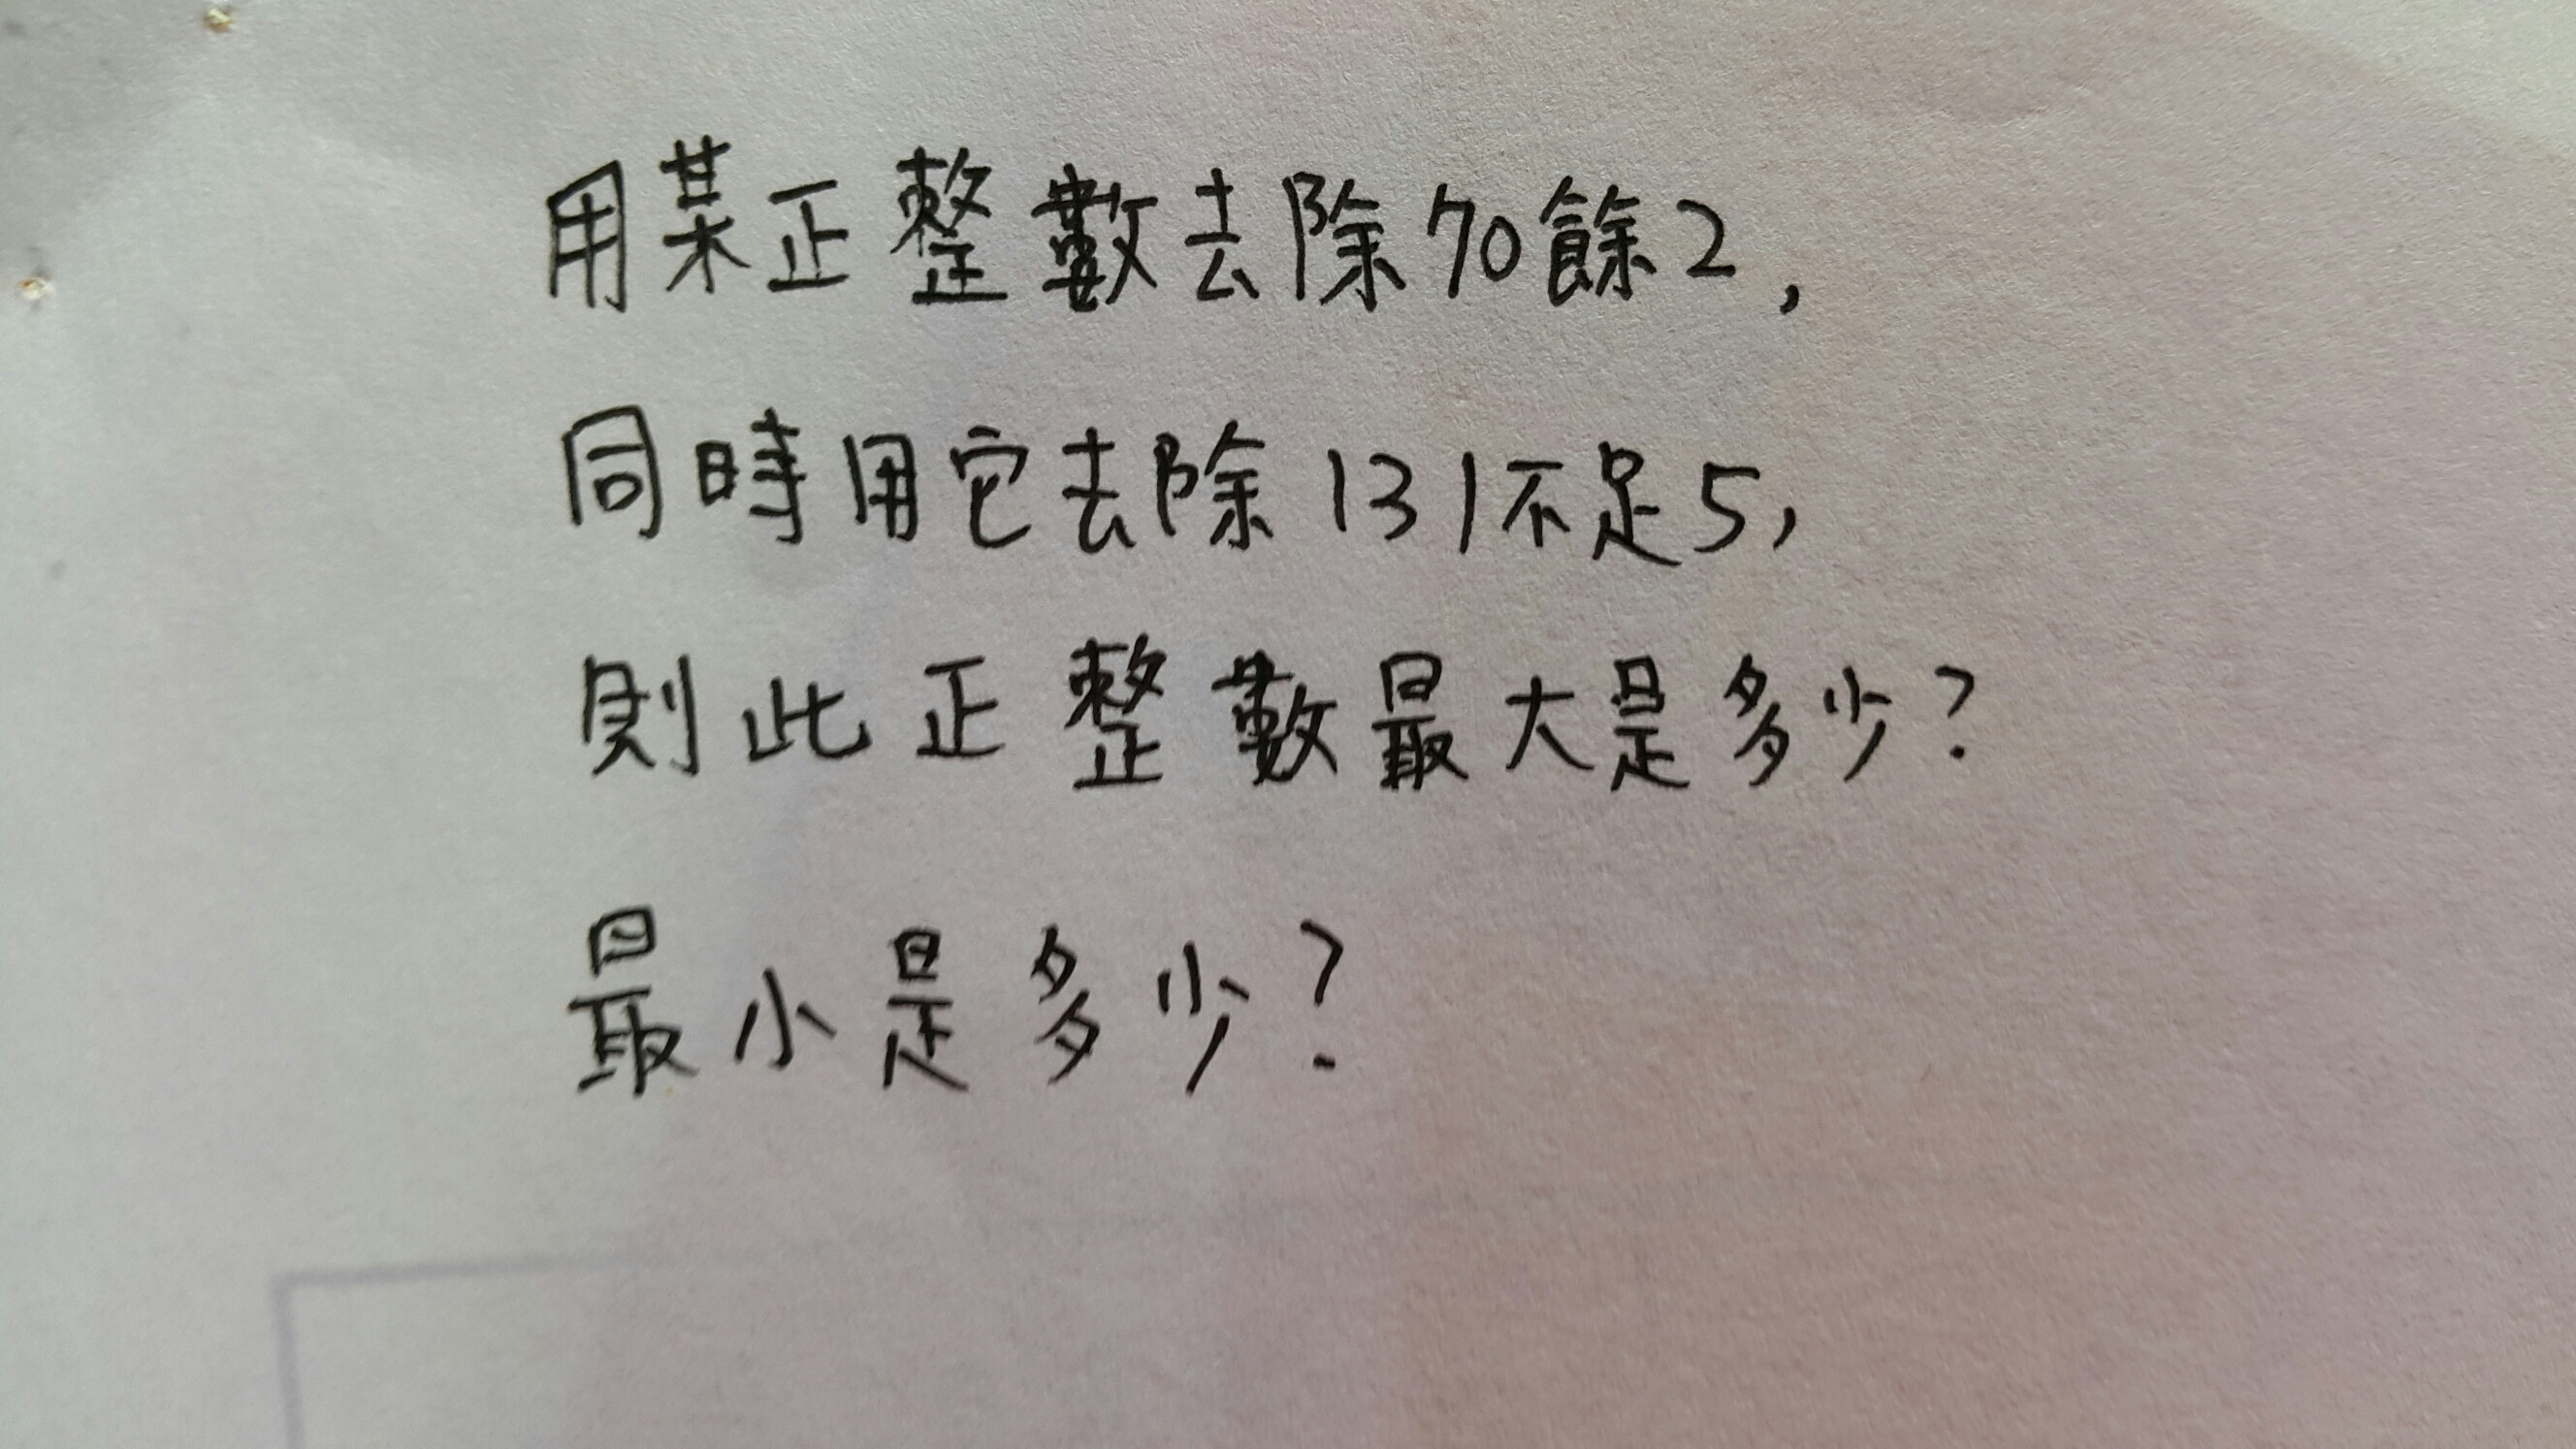 用某正整數去除70餘2,
同時用它去除131不足5,
則此正整數最大是多少?
最小是多少?